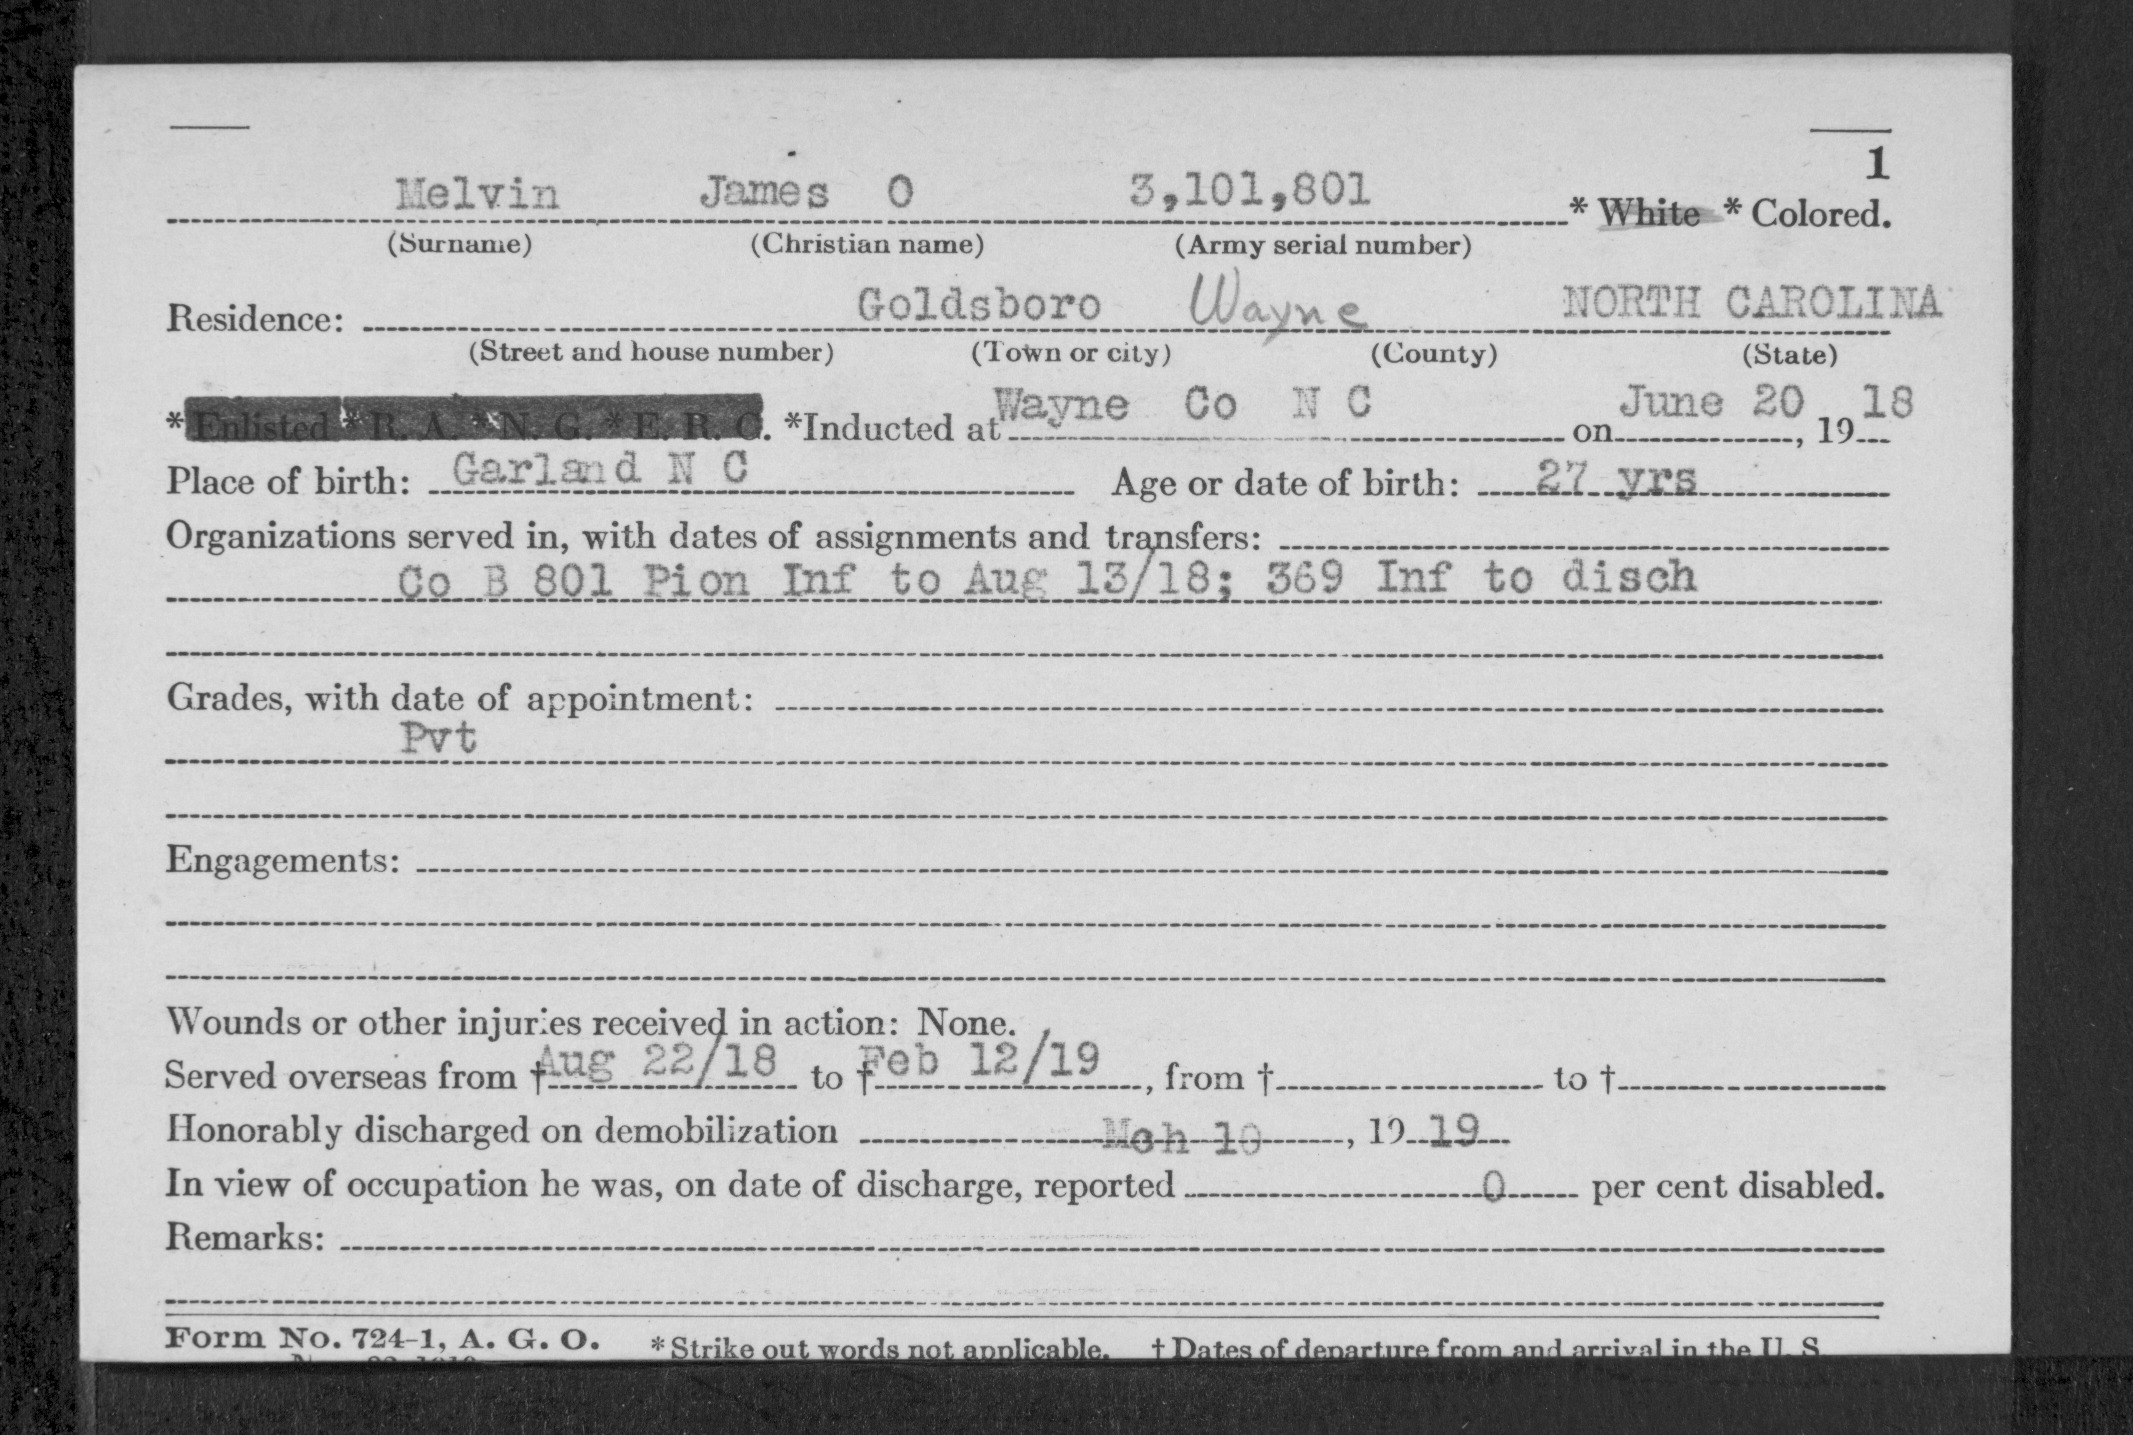 1
Melvin James O 3,101,801 * White * Colored.
(Surname) (Christian name) (Army serial number)
Residence: Goldsboro Wayne NORTH CAROLINA
(Street and house number) (Town or city) (County) (State)
* Enlisted * R. A. * N. G. * E. R. C. *Inducted at Wayne Co N C on June 20, 1918
Place of birth: Garland N C Age or date of birth: 27 yrs
Organizations served in, with dates of assignments and transfers:
Co B 801 Pion Inf to Aug 13/18; 369 Inf to disch
Grades, with date of appointment:
Pvt
Engagements:
Wounds or other injuries received in action: None.
Served overseas from † Aug 22/18 to † Feb 12/19, from † to †
Honorably discharged on demobilization Mch 10, 1919
In view of occupation he was, on date of discharge, reported 0 per cent disabled.
Remarks:
Form No. 724-1, A. G. O. * Strike out words not applicable. † Dates of departure from and arrival in the U. S